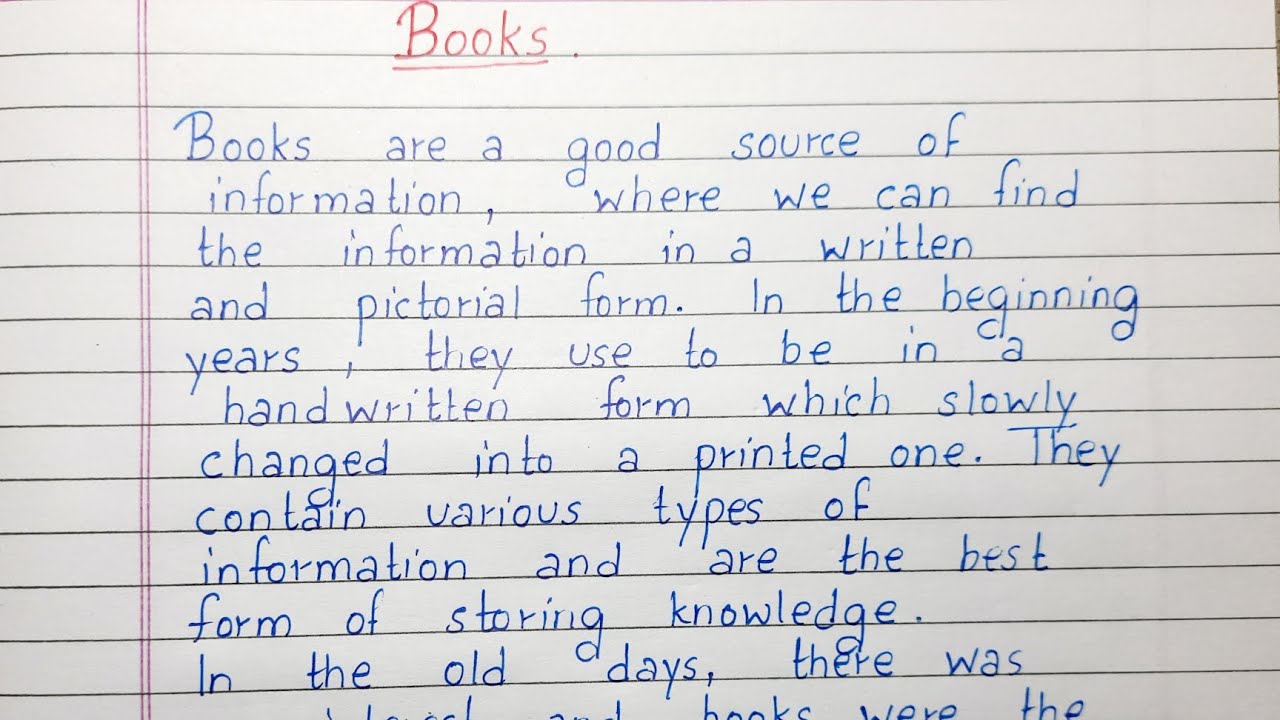 Books.
Books are a good source of
information, where we can find
the information in a written
and pictorial form. In the beginning
years, they use to be in a
handwritten form which slowly
changed into a printed one. They
contain various types of
information and are the best
form of storing knowledge.
In the old days, there was
and books were the